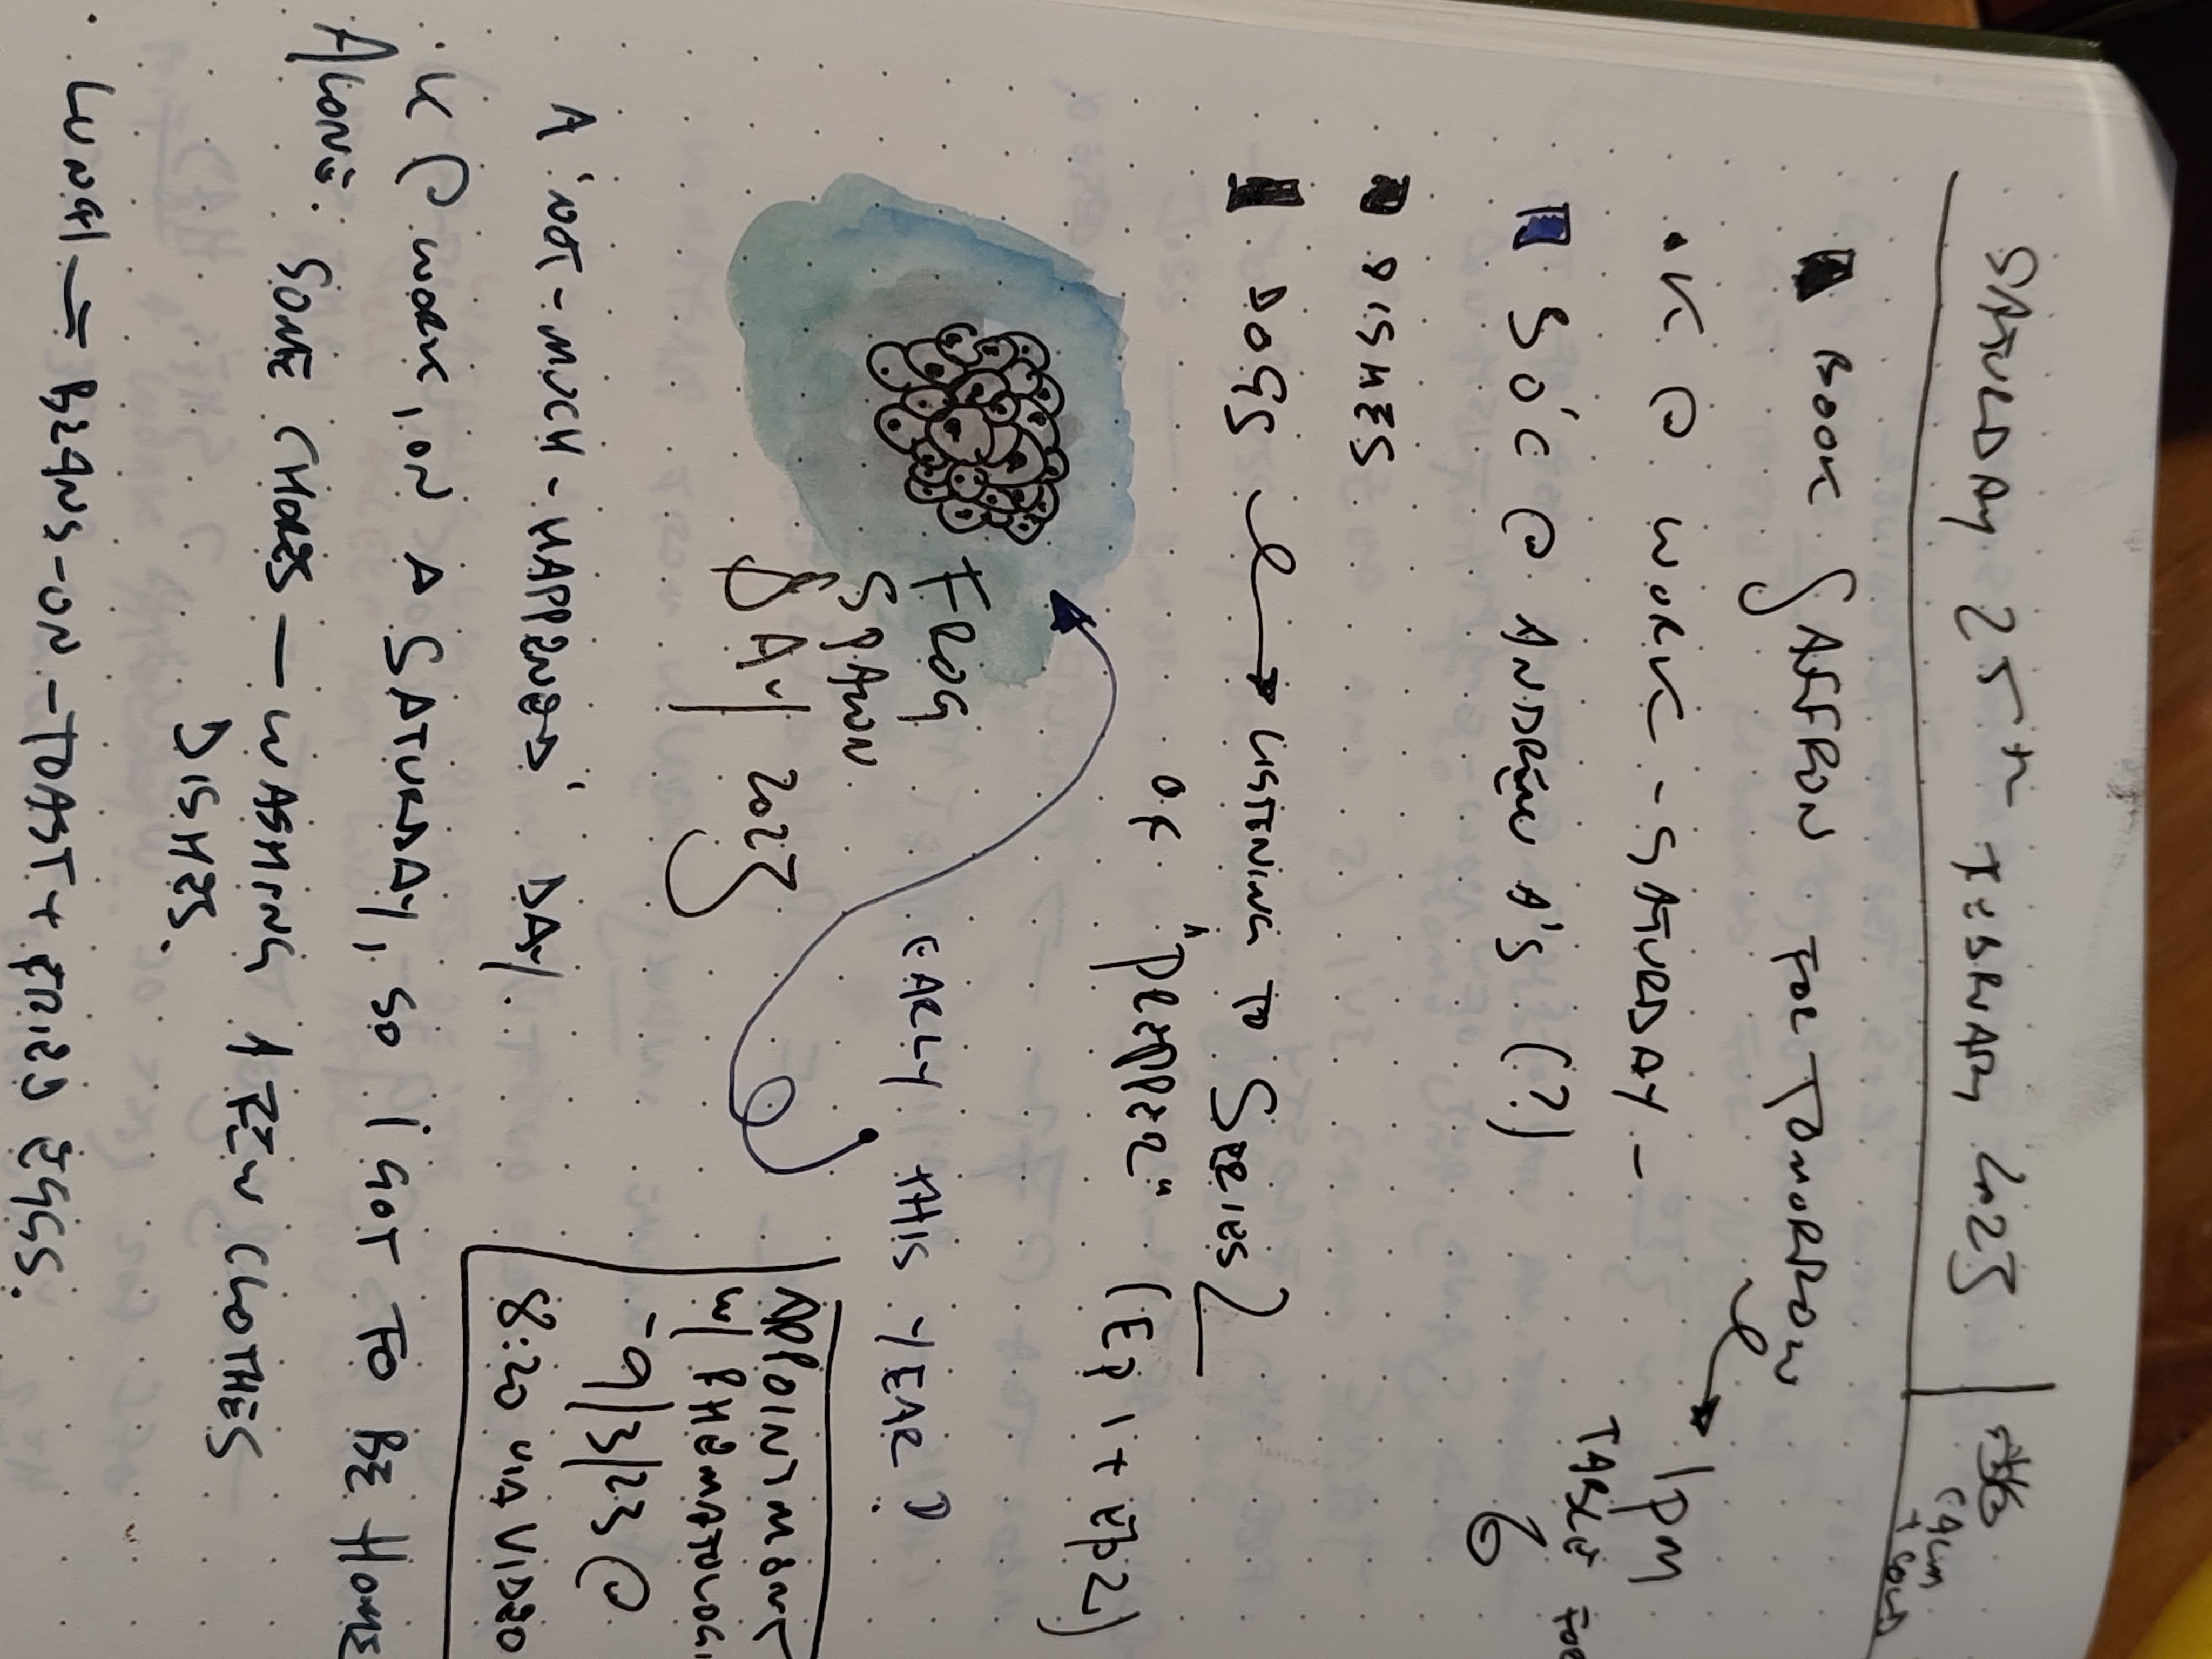 SATURDAY 25th FEBRUARY 2023
CALM + COLD
BOOK SAFFRON FOR TOMORROW
1PM
TABLE FOR
6
• K @ WORK - SATURDAY -
SO'C @ ANDREW A'S (?)
DISHES
DOGS → LISTENING TO SERIES 2
OF "PREPPER" (EP 1 + EP 2)
FROG
SPAWN
DAY 2023
EARLY THIS YEAR?
APPOINTMENT
W/ RHEUMATOLOG
- 9/3/23 @
8:20 VIA VIDEO
A 'NOT-MUCH-HAPPENED' DAY.
K @ WORK, ON A SATURDAY, SO I GOT TO BE HOME
ALONE. SOME CHORES — WASHING A FEW CLOTHES
DISHES.
LUNCH = BEANS-ON-TOAST + FRIED EGGS.